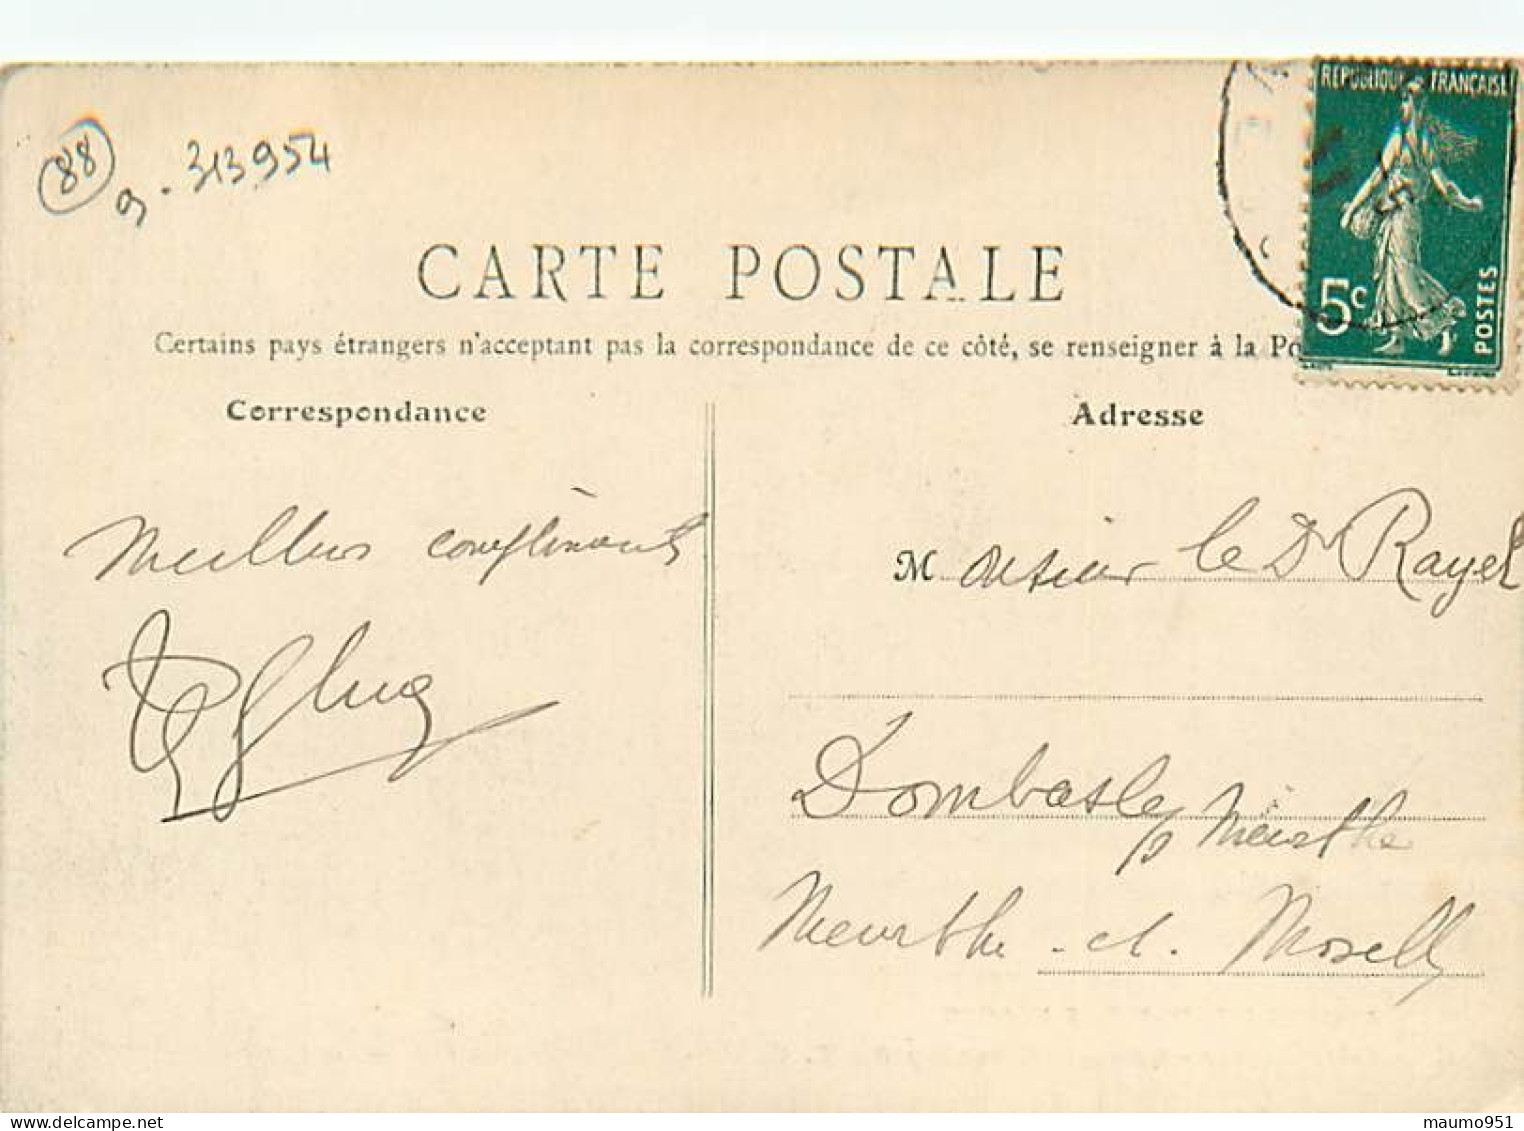 88
9. 313954
RÉPUBLIQUE FRANÇAISE
5c
POSTES
CARTE POSTALE
Certains pays étrangers n'acceptant pas la correspondance de ce côté, se renseigner à la Po
Correspondance
Adresse
Meilleurs compliments
Monsieur le Dr Rayel
Dombasle
s/ Meurthe
Meurthe-et-Moselle
maumo951